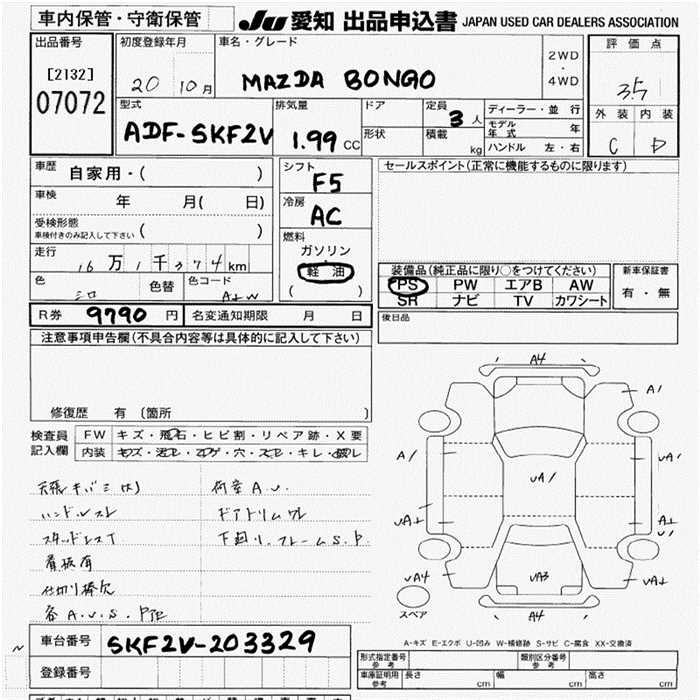 車内保管・守衛保管
JU 愛知 出品申込書 JAPAN USED CAR DEALERS ASSOCIATION
出品番号
[2132]
07072
初度登録年月
20 10月
車名・グレード
MAZDA BONGO
2WD
・
4WD
評価点
3.5
外装 内装
C D
型式
ADF-SKF2V
排気量
1.99 cc
ドア
形状
定員
3人
積載
kg
ディーラー・並行
モデル年式 年
ハンドル 左・右
車歴
自家用・( )
車検
年 月( 日)
受検形態
車検付きのみ記入して下さい ( )
走行
16万1千374km
色
シロ
色替
色コード
A2W
シフト
F5
冷房
AC
燃料
ガソリン
軽油
( )
セールスポイント(正常に機能するものに限ります)
装備品(純正品に限り○をつけてください)
PS PW エアB AW
SR ナビ TV カワシート
新車保証書
有・無
後日品
R券 9790 円
名変通知期限 月 日
注意事項申告欄(不具合内容等は具体的に記入して下さい)
修復歴 有 (箇所 )
検査員
記入欄
FW キズ・飛石・ヒビ割・リペア跡・X要
内装 キズ・汚レ・コゲ・穴・スレ・キレ・破レ
ハンドルスレ
荷室 A.U.
ドアトリムワレ
下回り、フレームS.P.
看板有
仕切り棒欠
各A.U.S.P担
A4
A1
A1
UA1
UA1
UA2
A2
U1
UA4
UA3
UA2
A4
スペア
A-キズ E-エクボ U-凹み W-補修跡 S-サビ C-腐食 XX-交換済
車台番号
SKF2V-203329
登録番号
形式指定番号
参考
類別区分番号
参考
車庫証明用
参考
長さ cm
幅 cm
高さ cm